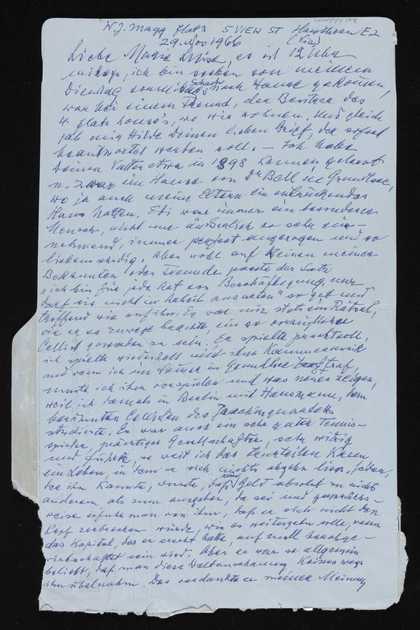 W.J. Magg Flat 2 5 VIEW ST Hawthorn E2
29. Nov 1966 (Vic)
Liebe Maria Luise, es ist 12 Uhr
mittags, ich bin soeben von meinem
Dienstag nach Hause gekommen,
war bei einem Freund, dem Besitzer des
4 flats house's, wo wir wohnen. Und gleich
gab mir Hilde Deinen lieben Brief, der sofort
beantwortet werden soll. - Ich habe
Deinen Vater etwa in 1898 kennen gelernt
u. zwar im Hause von Dr Ball in Gmunden,
wo ja auch meine Eltern ein entzückendes
Haus hatten. Er war immer ein besonderer
Mensch, nicht nur äußerlich so sehr ein-
nehmend, immer perfect angezogen und so
liebenswürdig. Aber wohl auf keinen meiner
Bekannten oder Freunde passte der Satz
"ich bin für jede Art von Beschäftigung, nur
darf sie nicht in Arbeit ausarten" so gut und
treffend wie auf ihn. Es war mir stets ein Rätsel,
wie er es zuwege brachte, ein so vorzüglicher
Cellist geworden zu sein. Er spielte prachtvoll,
ich spielte wiederholt mit ihm Kammermusik
und wenn ich ihn zuhause in Gmunden traf,
musste ich ihm vorspielen und was neues zeigen,
weil ich damals in Berlin mit Hausmann, dem
berühmten Cellisten des Joachimquartetts
studierte. Er war auch ein sehr guter Tennis-
spieler, prächtiger Gesellschafter, sehr witzig
und führte, so weit ich das beurteilen kann
ein Leben, in dem er sich nichts abgehn liess. Jeder,
der ihn kannte, wusste, daß Geld absolut zu nichts
anderem als zum ausgeben, da sei und gesprächs-
weise erfuhr man von ihm, daß er sich nicht den
Kopf zerbrechen würde, wie es weitergehn solle, wenn
das Kapital, das er geerbt hatte, auf null herabge-
wirtschaftet sein wird. Aber er war so allgemein
beliebt, daß man diese Weltanschauung keineswegs
ihm übelnahm. Das verdankte er meiner Meinung